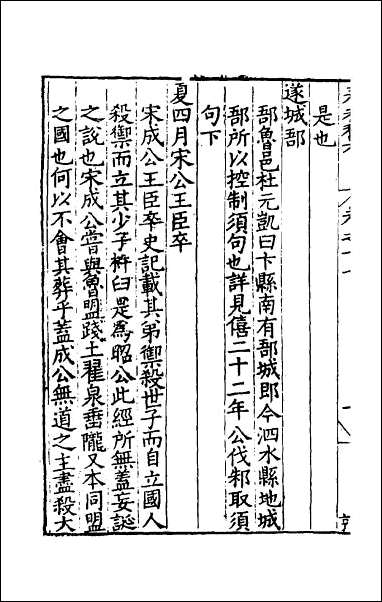 是也
遂城郚
郚魯邑杜元凱曰卞縣南有郚城即今泗水縣地城
郚所以控制須句也詳見僖二十二年公伐邾取須
句下
夏四月宋公王臣卒
宋成公王臣卒史記載其弟禦殺世子而自立國人
殺禦而立其少子杵臼是為昭公此經所無蓋妄誕
之說也宋成公嘗與魯盟踐土翟泉垂隴又本同盟
之國也何以不會其葬乎蓋成公無道之主盡殺大